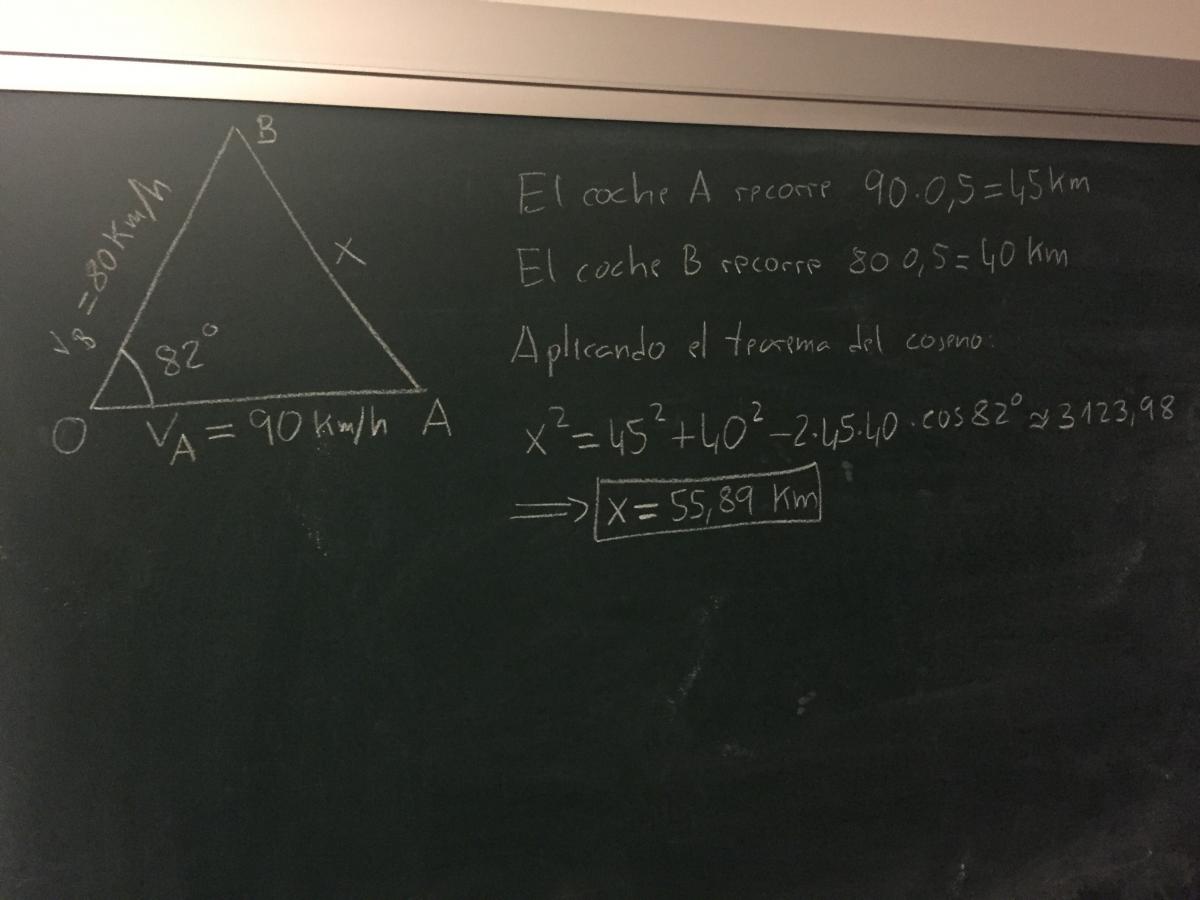 B
V_B = 80 Km/h
X
82°
O
V_A = 90 Km/h
A
El coche A recorre 90·0,5=45Km
El coche B recorre 80 0,5=40 Km
Aplicando el teorema del coseno:
x²=45²+40²-2·45·40·cos82°≈3123,98
⟹ x= 55,89 Km